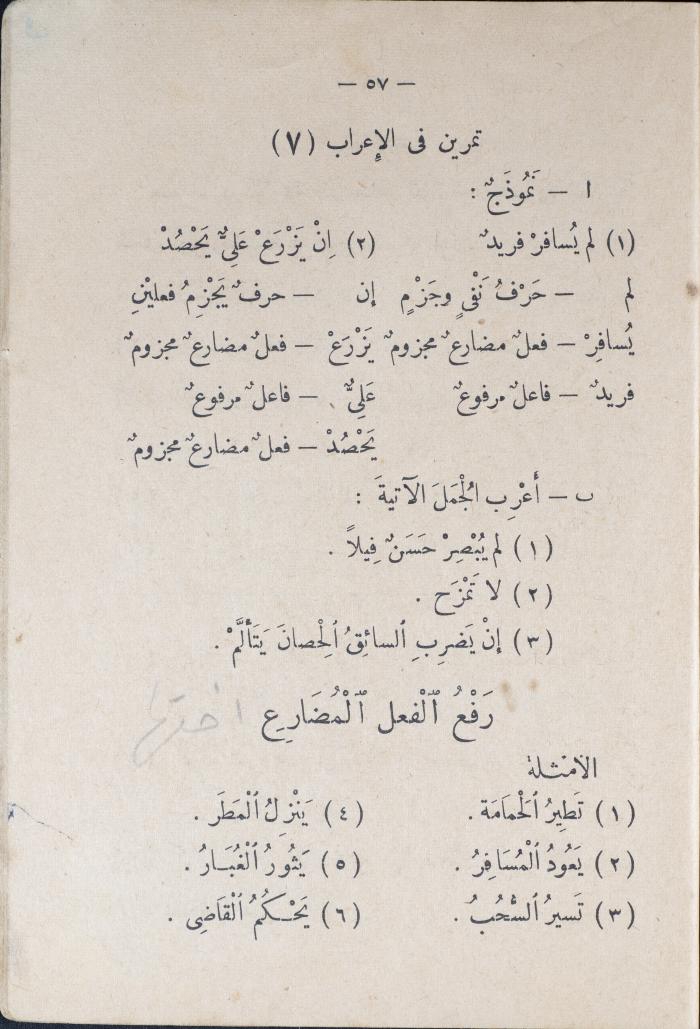 — ٥٧ —
تمرين فى الإعراب (٧)
ا — نَمُوذَجٌ :
(١) لم يُسافرْ فريدٌ (٢) إِنْ يَزْرَعْ عَلِىٌّ يَحْصُدْ
لم — حَرْفُ نَفْىٍ وجَزْمٍ إن — حرفٌ يَجْزِمُ فعليْنِ
يُسافِرْ — فعلٌ مضارعٌ مجزومٌ يَزْرَعْ — فعلٌ مضارعٌ مجزومٌ
فريدٌ — فاعلٌ مرفوعٌ عَلِىٌّ — فاعلٌ مرفوعٌ
يَحْصُدْ — فعلٌ مضارعٌ مجزومٌ
ب — أَعْرِب الْجُمَلَ الآتيةَ :
(١) لم يُبْصِرْ حَسَنٌ فِيلاً .
(٢) لا تَمْزَح .
(٣) إنْ يَضرِبِ ٱلسائِقُ ٱلْحِصانَ يَتَأَلَّمْ .
رَفْعُ ٱلْفعل ٱلْمُضَارِعِ
الأمثلة
(١) تَطِيرُ ٱلْحَمَامَة . (٤) يَنْزِلُ ٱلْمَطَر .
(٢) يَعُودُ ٱلْمُسَافِرُ . (٥) يَثُورُ ٱلْغُبَارُ .
(٣) تَسيرُ ٱلسُّحُبُ . (٦) يَحْكُمُ ٱلْقَاضِى .